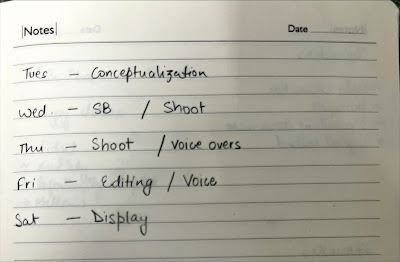 Notes Date
Tues - Conceptualization
Wed. - SB / Shoot
Thu - Shoot / Voice overs
Fri - Editing / Voice
Sat - Display